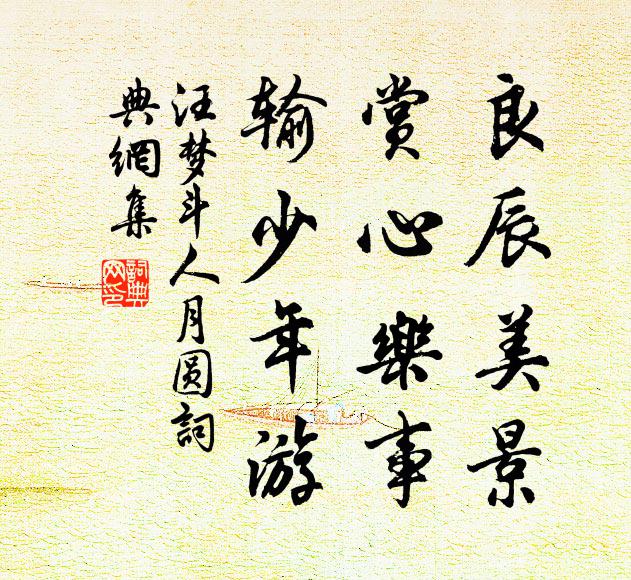 良辰美景
赏心樂事
输少年游
汪梦斗人月圆詞
典網集
詞典
网印